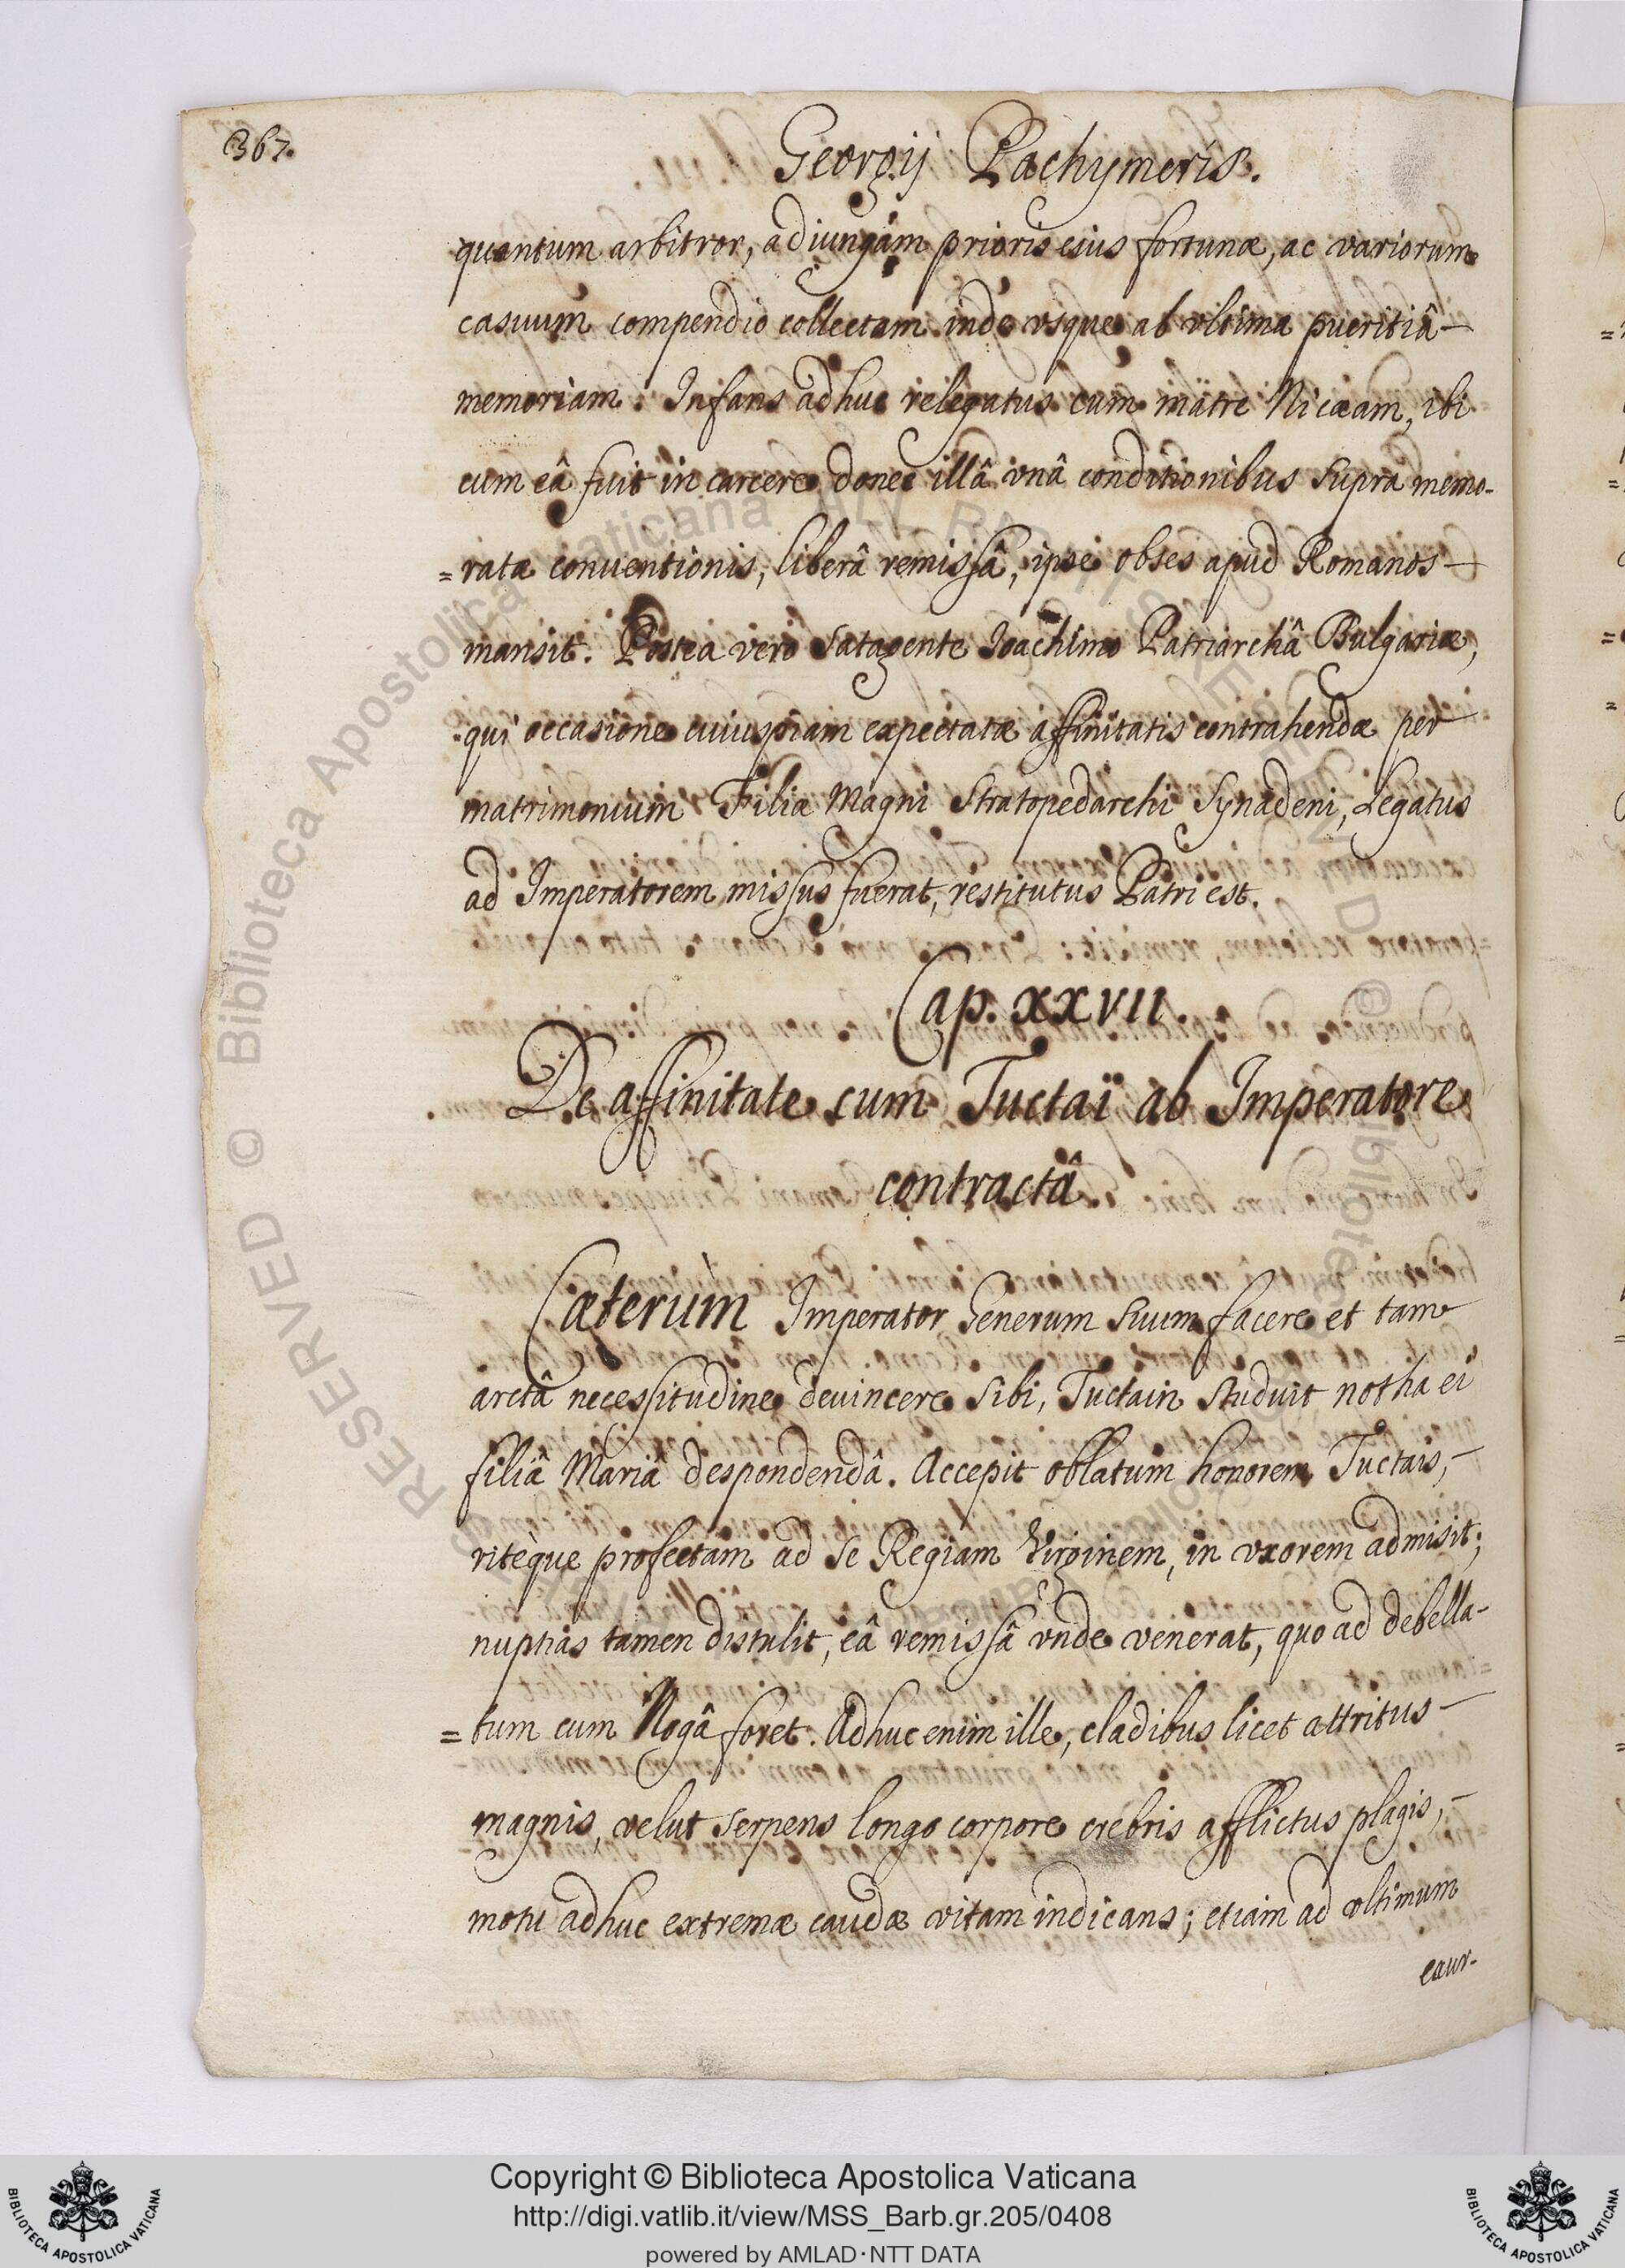 367.
Georgij Pachymeris.
quantum arbitror, adiungam prioris eius fortunæ, ac variorum
casuum compendio collectam inde vsque ab vltima pueritiâ
memoriam. Infans adhuc relegatus cum matre Nicæam, ibi
cum eâ fuit in carcere, donec illâ vnâ conditionibus supra memo-
=ratæ conuentionis, liberâ remissâ, ipse obses apud Romanos
mansit. Postea vero satagente Ioachimo Patriarchâ Bulgariæ,
qui occasione cuiuspiam expectatæ affinitatis contrahendæ per
matrimonium Filiæ Magni Stratopedarchi Synadeni, Legatus
ad Imperatorem missus fuerat, restitutus Patri est.
Cap. XXVII.
De affinitate cum Tuctaï ab Imperatore
contractâ
Cæterùm Imperator Generum suum facere et tam
arctâ necessitudine deuincere sibi, Tuctain studuit notha ei
filiâ Mariâ despondendâ. Accepit oblatum honorem Tuctais,
ritèque profectam ad se Regiam Virginem, in vxorem admisit;
nuptias tamen distulit, eâ remissâ vnde venerat, quo ad debella-
=tum cum Nogâ foret. Adhuc enim ille, cladibus licet attritus
magnis, velut serpens longo corpore crebris afflictus plagis,
motu adhuc extremæ caudæ vitam indicans; etiam ad vltimum
caur-
RESERVED © Biblioteca Apostolica Vaticana
Copyright © Biblioteca Apostolica Vaticana
http://digi.vatlib.it/view/MSS_Barb.gr.205/0408
powered by AMLAD·NTT DATA
BIBLIOTECA APOSTOLICA VATICANA
BIBLIOTECA APOSTOLICA VATICANA